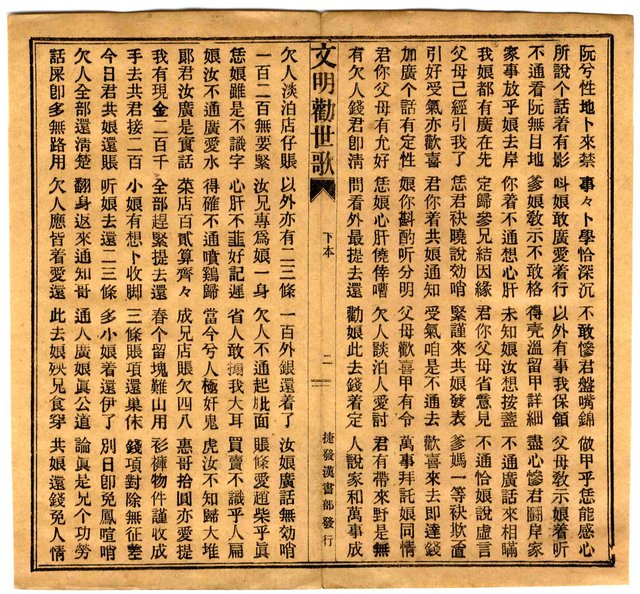 阮兮性地卜來禁 事々卜學恰深沉 不敢慘君盤嘴錦 做甲乎恁能感心
所說个話着有影 呌娘敢廣愛着行 以外有事我保領 父母敎示娘着听
不通看阮無目地 爹娘敎示不敢格 得壳溫留甲詳細 盡心慘君鬪岸家
家事放乎娘去岸 你着不通想心肝 未知娘汝想按盞 不通廣話來相瞞
我娘都有廣在先 定歸參兄結因緣 君你父母省意見 不通恰娘說虛言
父母己經引我了 恁君袂曉說効哨 緊謹來共娘發表 爹媽一等袂欺
引好受氣亦歡喜 君你着共娘通知 受氣咱是不通去 歡喜來去即達錢
加廣个話有定性 娘你斟酌听分明 父母歡喜甲有令 萬事拜託娘同情
君你父母有允好 恁娘心肝僥倖嘈 欠人談泊人愛討 君有帶來野是無
有欠人錢君卽淸 問看外最提去還 勸娘此去錢着定 人說家和萬事成
文明勸世歌 下本 二 捷發漢書部發行
欠人淡泊店仔賬 以外亦有二三條 一百外銀還着了 汝娘廣話無効哨
一百二百無要緊 汝兄專為娘一身 欠人不通起肶面 賬條愛趕柴乎眞
恁娘雖是不識字 心肝不韮好記遲 省人敢搦我大耳 買賣不識乎人扁
娘汝不通廣愛水 得確不通噴鷄歸 當今兮人極奸鬼 虎汝不知歸大堆
郞君汝廣是實話 菜店百貳算齊々 成兄店賬欠四八 惠哥拾圓亦愛提
我有現金二百千 全部趕緊提去還 春个留塊難山用 衫褲物件謹收成
手去共君接二百 小娘有想卜收脚 三條賬項還巢休 錢項對除無征差
今日君共娘還賬 听娘去還二三條 多小娘着還伊了 別日卽免鳳喧哨
欠人全部還淸楚 翻身返來通知哥 通人廣娘眞公道 論眞是兄个功勞
話屎卽多無路用 欠人應皆着愛還 此去娘殃兄食穿 共娘還錢免人情